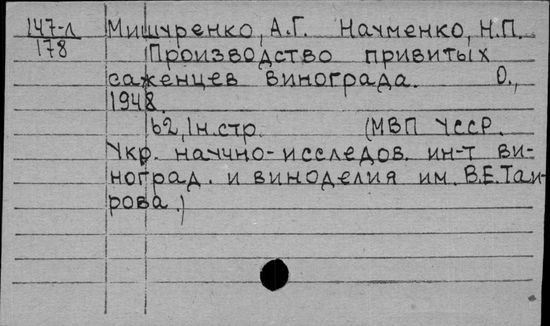 147-л Мишуренко, А.Г. Науменко, Н.П.
178 Производство привитых
саженцев винограда. О.,
1948.
62, 1н.стр. (МВП УССР.
Укр. научно-исследов. ин-т ви-
ноград. и виноделия им. В.Е.Таи-
рова.)